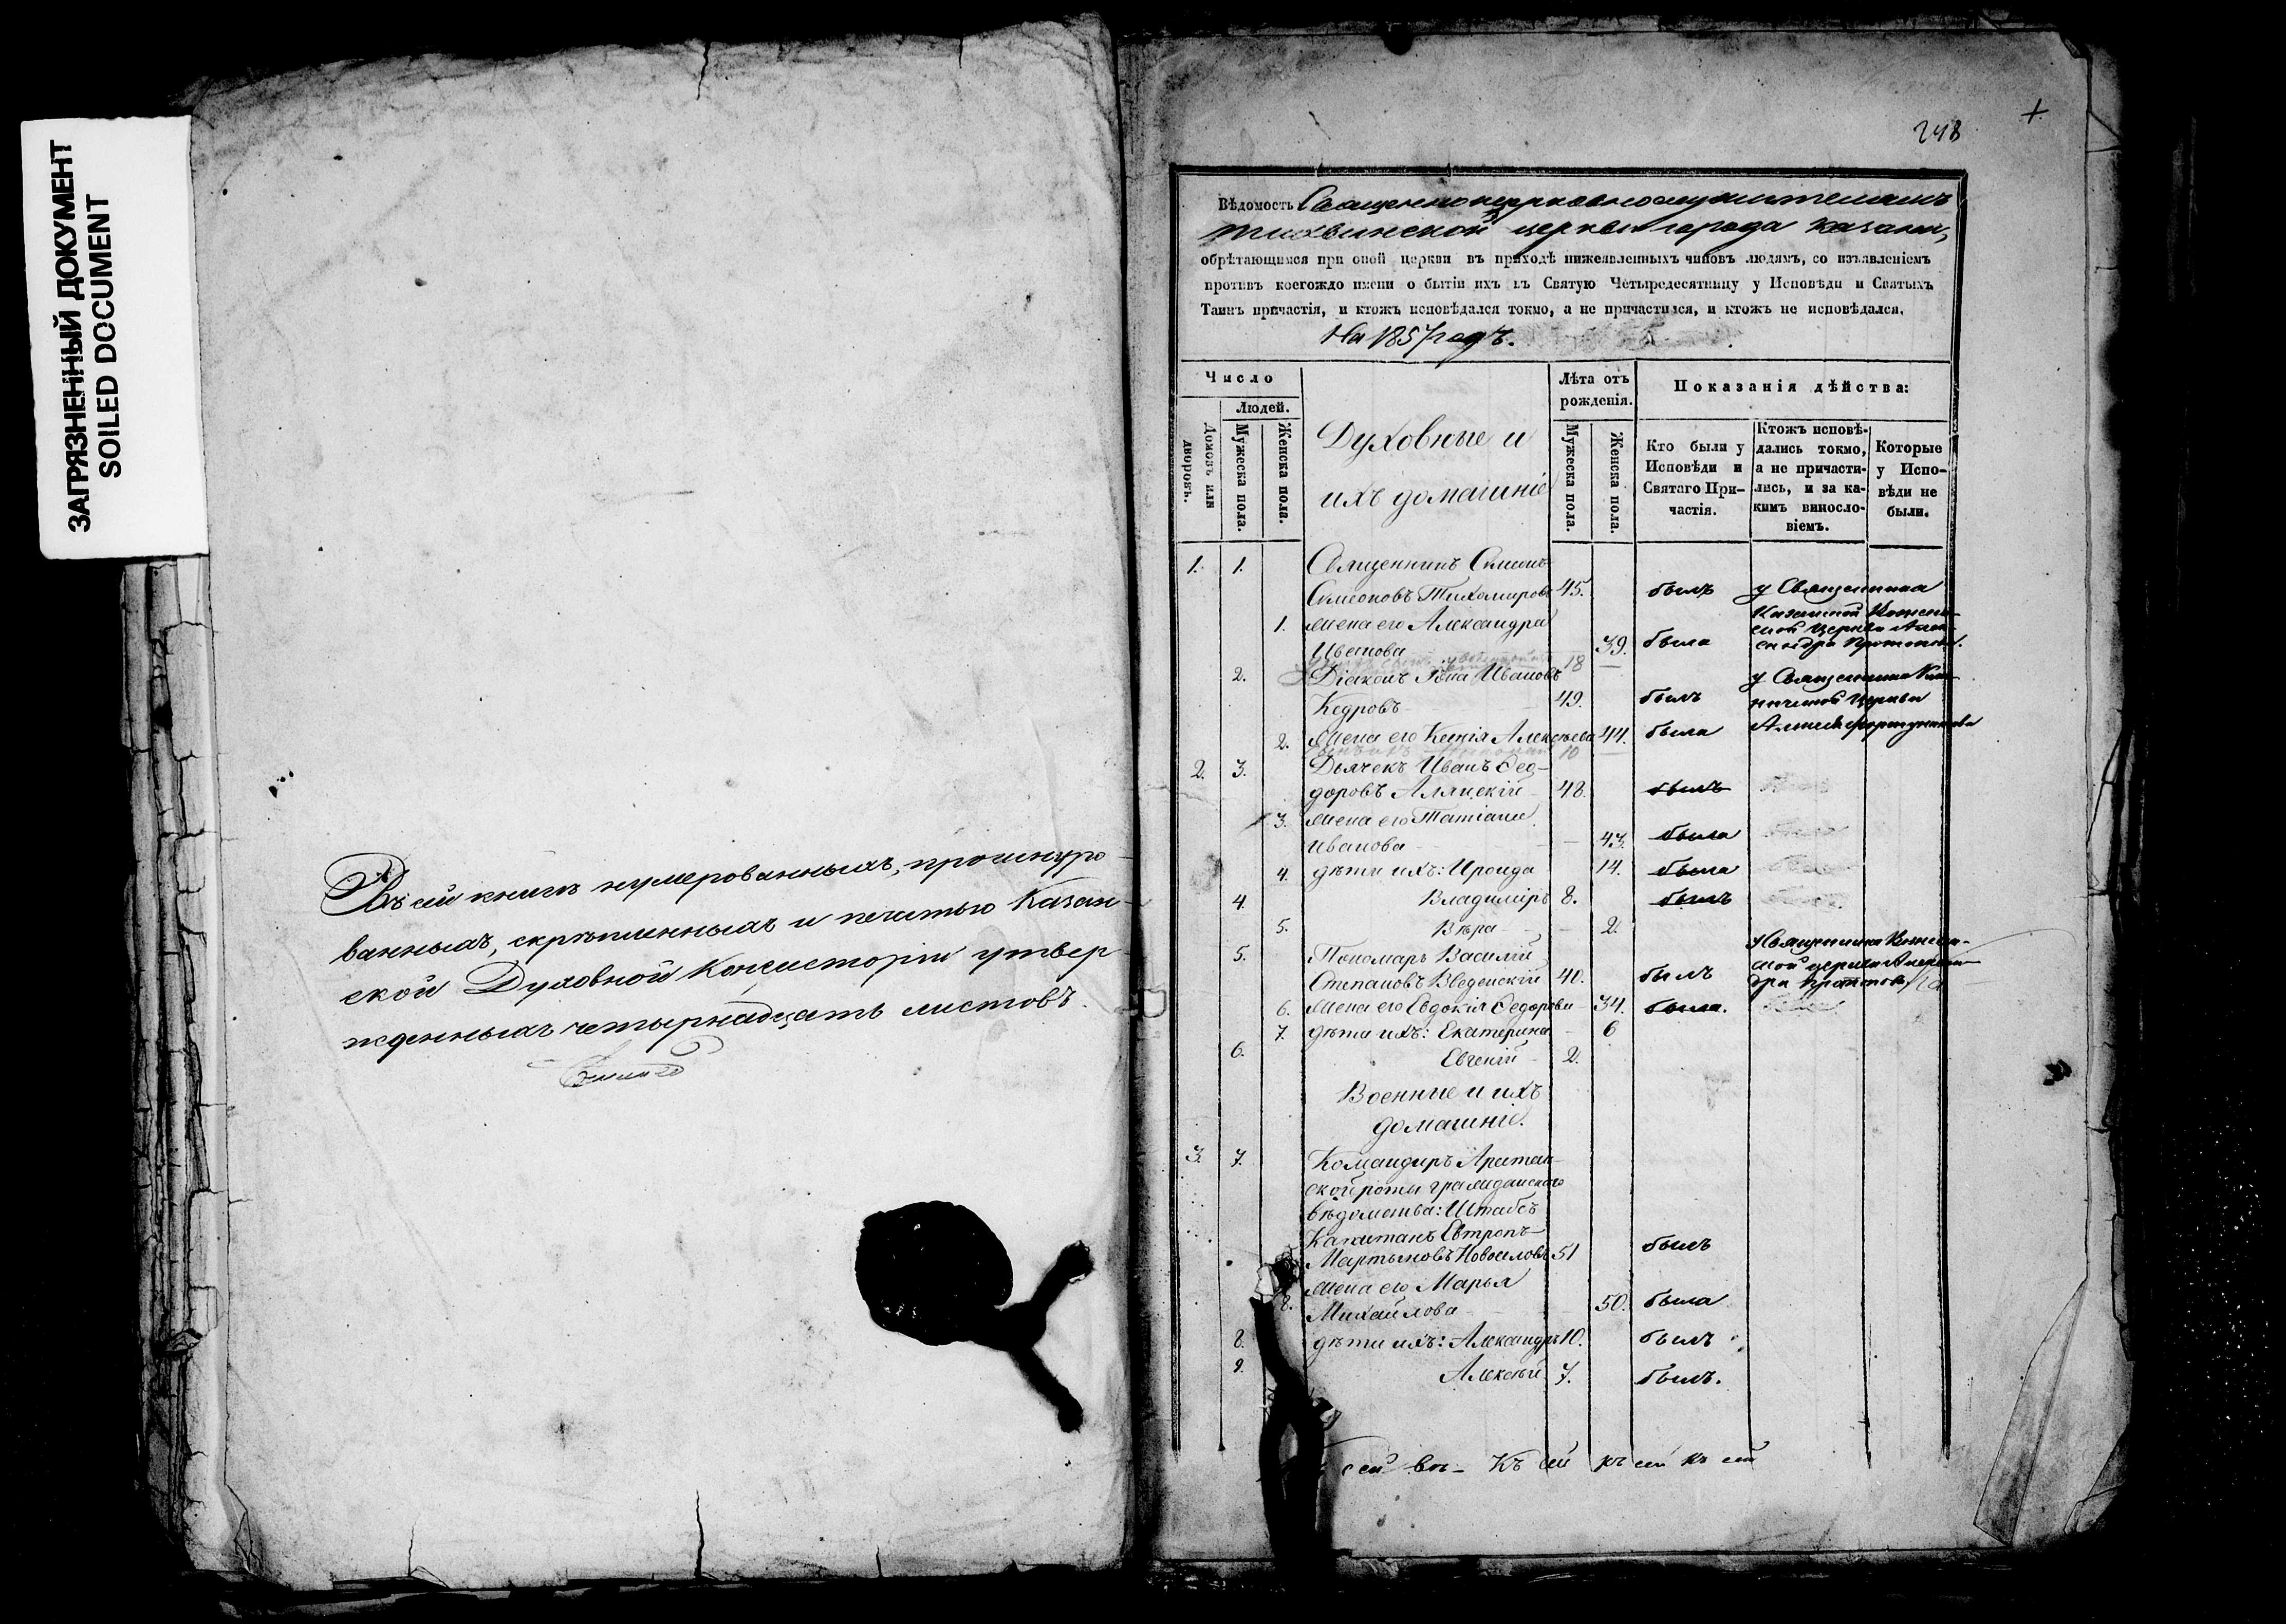 ЗАГРЯЗНЕННЫЙ ДОКУМЕНТ
SOILED DOCUMENT
Въ сей книгѣ нумерованныхъ, прошнуро-
ванныхъ, скрѣпленныхъ и печатью Казан-
ской Духовной Консисторіи утвер-
жденныхъ четырнадцать листовъ.
248
Вѣдомость Священноцерковнослужителямъ
Тихвинской церкви города Казани,
обрѣтающимся при оной церкви въ приходѣ нижеявленныхъ чиновъ людямъ, со изъявленіемъ
противъ коегождо имени о бытіи ихъ въ Святую Четыредесятницу у Исповѣди и Святыхъ
Таинъ причастія, и ктожъ исповѣдался токмо, а не причастился, и ктожъ не исповѣдался.
На 1857 годъ.
Число
Людей.
Домовъ или дворовъ.
Мужеска пола.
Женска пола.
Духовные и
ихъ домашніе
Лѣта отъ
рожденія.
Мужеска пола.
Женска пола.
Показанія дѣйства:
Кто были у
Исповѣди и
Святаго При-
частія.
Ктожъ исповѣ-
дались токмо,
а не причасти-
лись, и за ка-
кимъ винослo-
віемъ.
Которые
у Испо-
вѣди не
были.
1. 1. Священникъ Симеонъ
Симеоновъ Тихомировъ 45. былъ у Священника
1. жена его Александра
Иванова 39. была
18
2. Діаконъ Іона Ивановъ у Священника
Кедровъ 49. былъ церкви
2. Жена его Ксенія Алексѣева 44. была
10
2. 3. Дьячекъ Иванъ Ѳео-
доровъ Алянскій 48. былъ
3. жена его Татіана
Иванова 43. была
4. дѣти ихъ: Ироида 14. была
4. Владиміръ 8. былъ
5. Вѣра 2.
5. Пономарь Василій
Степановъ Введенскій 40. былъ
6. Жена его Евдокія Ѳедорова 34. была.
7. дѣти ихъ: Екатерина 6
6. Евгеній 2.
Военные и ихъ
домашніе.
3. 7. Командиръ Арестан-
ской роты гражданскаго
вѣдомства: Штабсъ
Капитанъ Евтропъ
Мартыновъ Новоселовъ 51 былъ
8. жена его Марья
Михайлова 50. была
8. дѣти ихъ: Александръ 10. былъ
9. Алексѣй 7. былъ.